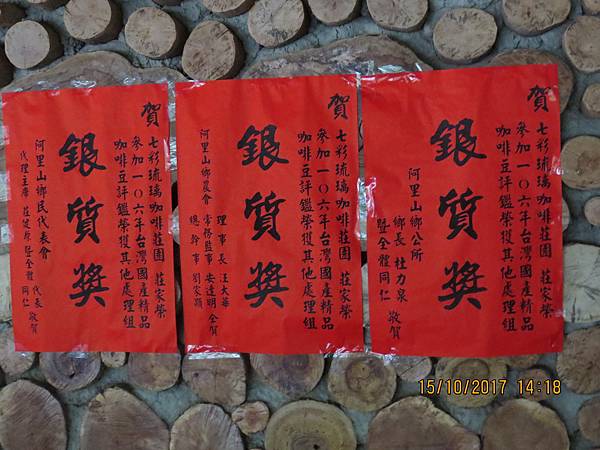 賀
七彩琉璃咖啡莊園 莊家榮
參加一〇六年台灣國產精品
咖啡豆評鑑榮獲其他處理組
銀質獎
阿里山鄉公所
鄉長 杜力泉
暨全體同仁 敬賀
賀
七彩琉璃咖啡莊園 莊家榮
參加一〇六年台灣國產精品
咖啡豆評鑑榮獲其他處理組
銀質獎
阿里山鄉農會
理事長 汪大華
常務監事 安達明 全賀
總幹事 劉家顯
賀
七彩琉璃咖啡莊園 莊家榮
參加一〇六年台灣國產精品
咖啡豆評鑑榮獲其他處理組
銀質獎
阿里山鄉民代表會
代理主席 莊 暨全體 代表 同仁 敬賀
15/10/2017 14:18